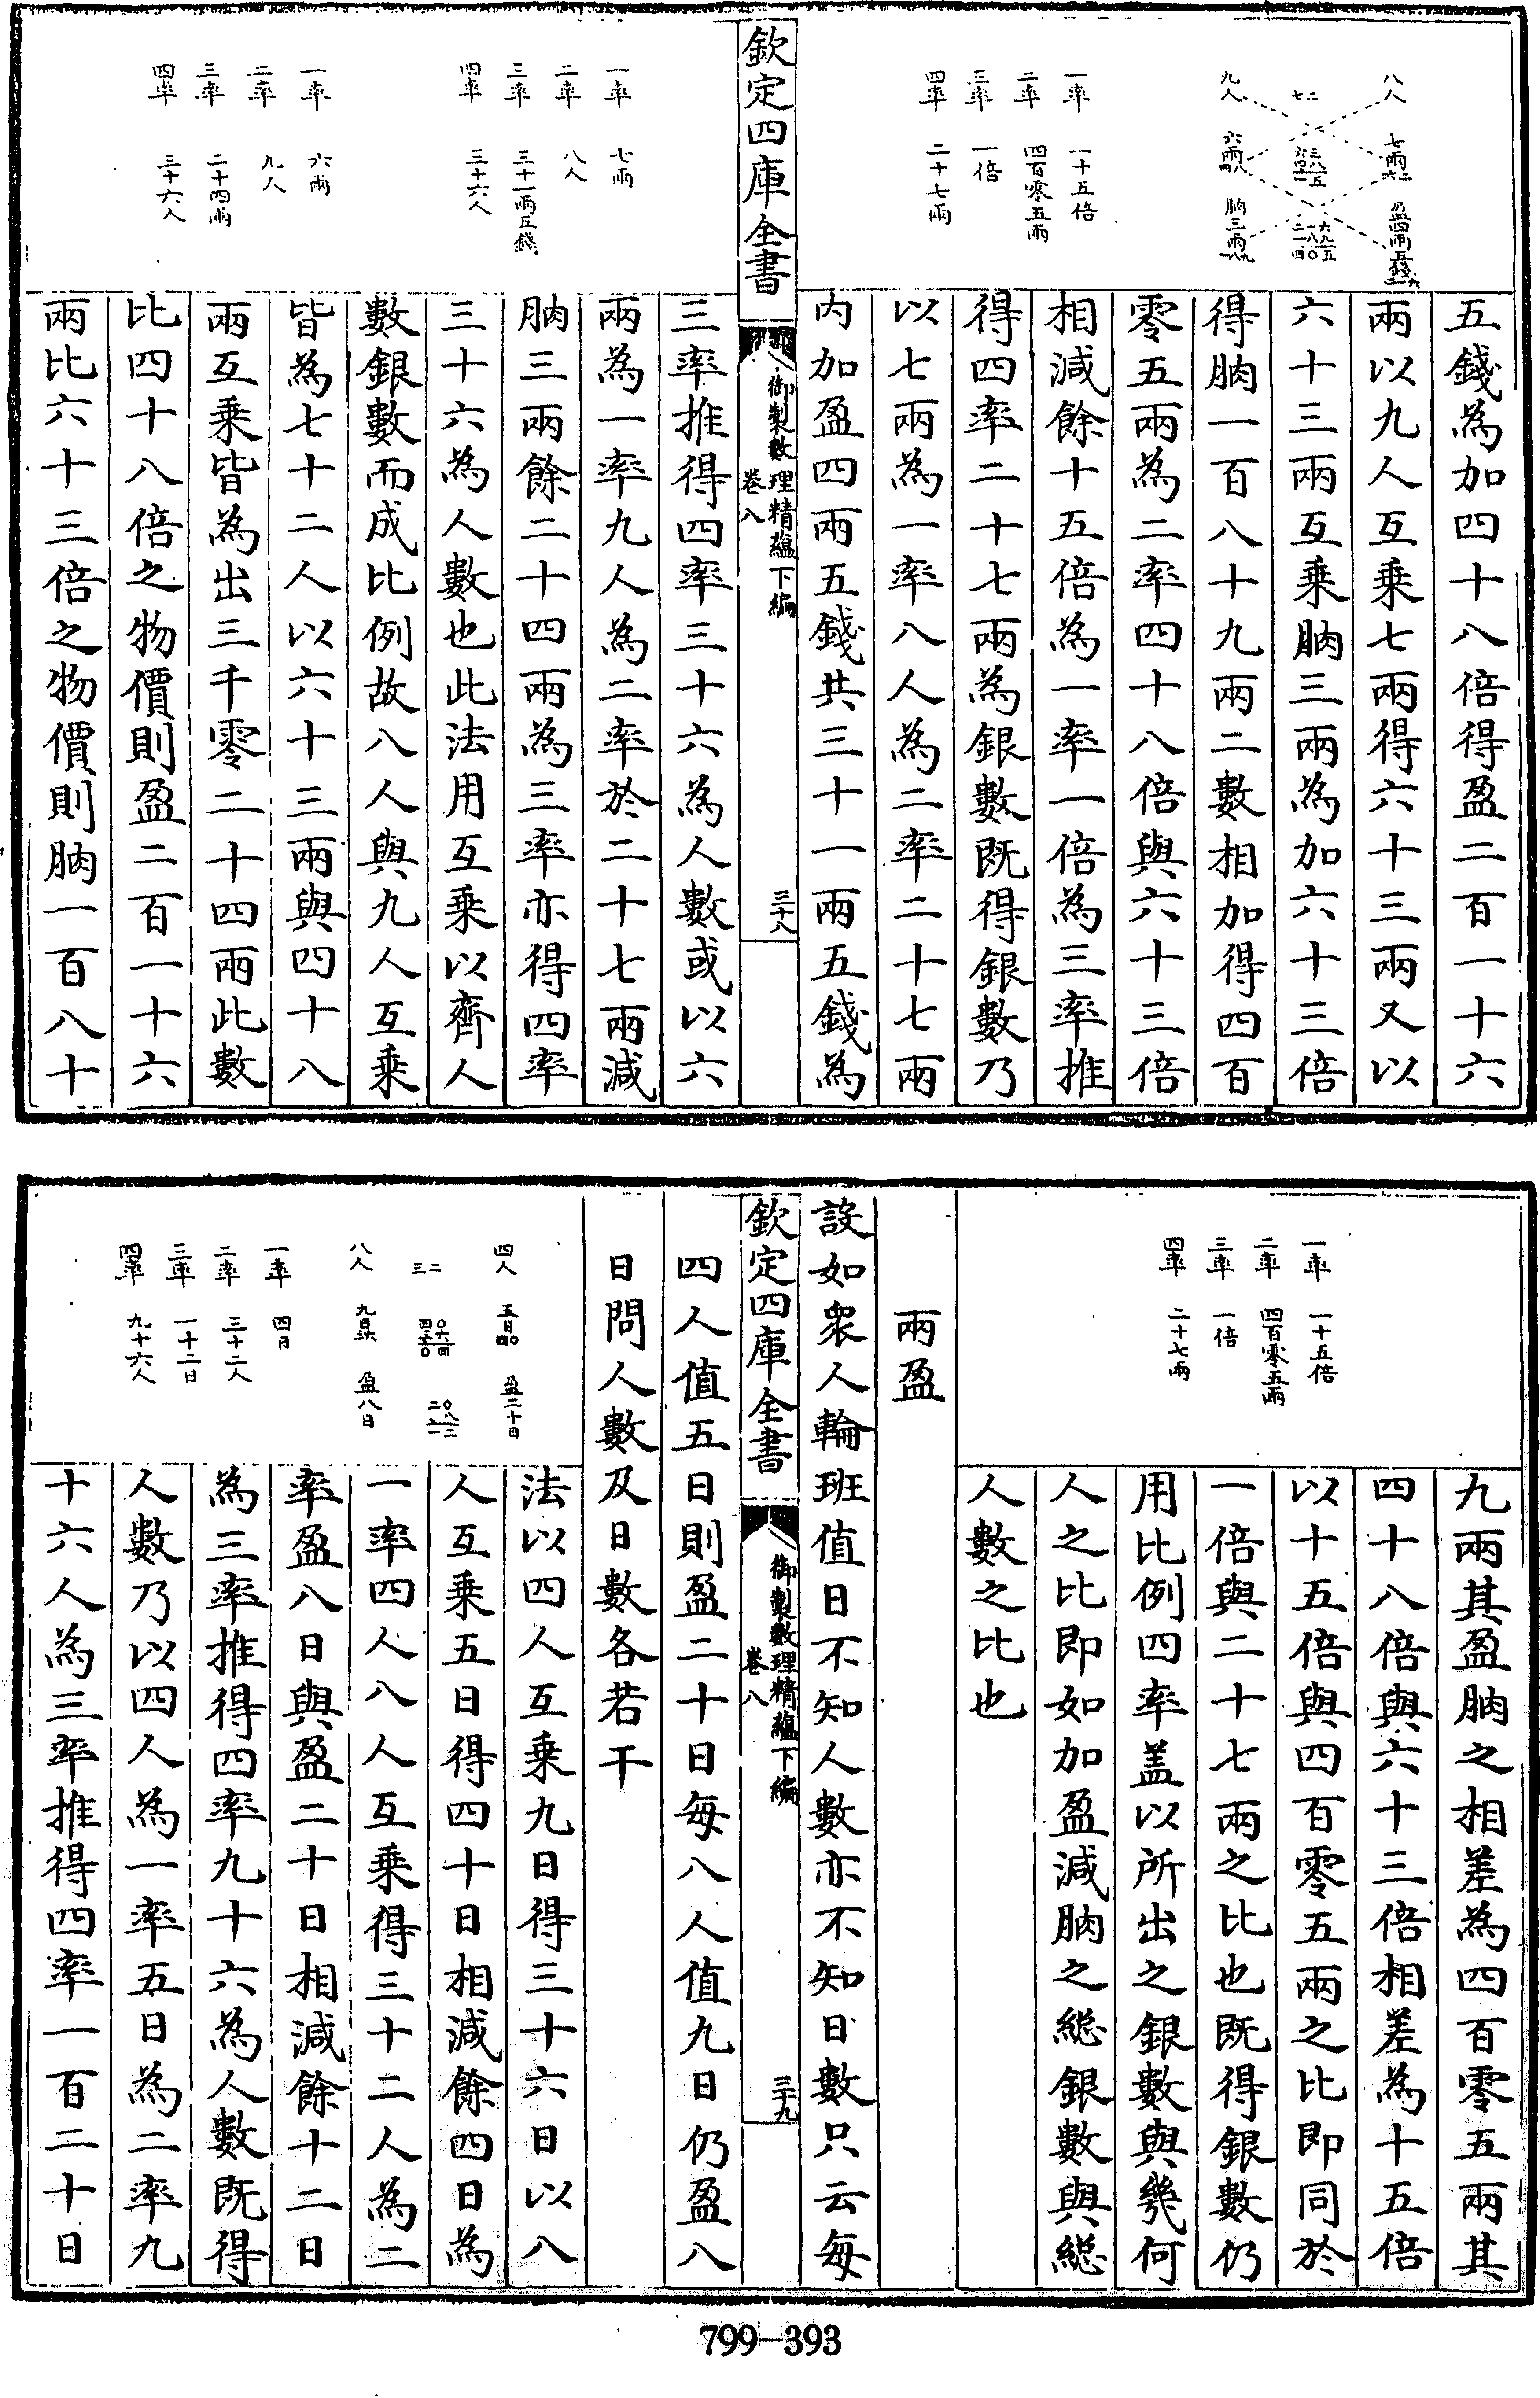 八人　七兩　盈四兩五錢
九人　六兩　朒三兩
一率　一十五倍
二率　四百零五兩
三率　一倍
四率　二十七兩
五錢為加四十八倍得盈二百一十六
兩以九人互乗七兩得六十三兩又以
六十三兩互乗朒三兩為加六十三倍
得朒一百八十九兩二數相加得四百
零五兩為二率四十八倍與六十三倍
相減餘十五倍為一率一倍為三率推
得四率二十七兩為銀數既得銀數乃
以七兩為一率八人為二率二十七兩
内加盈四兩五錢共三十一兩五錢為
欽定四庫全書
御製數理精蘊下編
卷八
三十八
一率　七兩
二率　八人
三率　三十一兩五錢
四率　三十六人
一率　六兩
二率　九人
三率　二十四兩
四率　三十六人
三率推得四率三十六為人數或以六
兩為一率九人為二率於二十七兩減
朒三兩餘二十四兩為三率亦得四率
三十六為人數也此法用互乗以齊人
數銀數而成比例故八人與九人互乗
皆為七十二人以六十三兩與四十八
兩互乗皆為出三千零二十四兩此數
比四十八倍之物價則盈二百一十六
兩比六十三倍之物價則朒一百八十
一率　一十五倍
二率　四百零五兩
三率　一倍
四率　二十七兩
九兩其盈朒之相差為四百零五兩其
四十八倍與六十三倍相差為十五倍
以十五倍與四百零五兩之比即同於
一倍與二十七兩之比也既得銀數仍
用比例四率葢以所出之銀數與幾何
人之比即如加盈減朒之総銀數與総
人數之比也
兩盈
設如衆人輪班值日不知人數亦不知日數只云每
欽定四庫全書
御製數理精蘊下編
卷八
三十九
四人值五日則盈二十日每八人值九日仍盈八
日問人數及日數各若干
四人　五日　盈二十日
八人　九日　盈八日
一率　四日
二率　三十二人
三率　一十二日
四率　九十六人
法以四人互乗九日得三十六日以八
人互乗五日得四十日相減餘四日為
一率四人八人互乗得三十二人為二
率盈八日與盈二十日相減餘十二日
為三率推得四率九十六為人數既得
人數乃以四人為一率五日為二率九
十六人為三率推得四率一百二十日
799-393